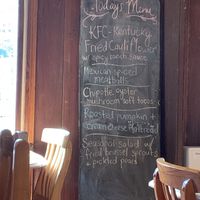 Today's Menu
"KFC - Kentucky
Fried Cauliflower"
w/ spicy ranch sauce
Mexican spiced
meatballs
Chipotle oyster
mushroom soft tacos
Roasted pumpkin +
cream cheese
Seasonal salad w/
fried brussel sprouts
+ pickled pears